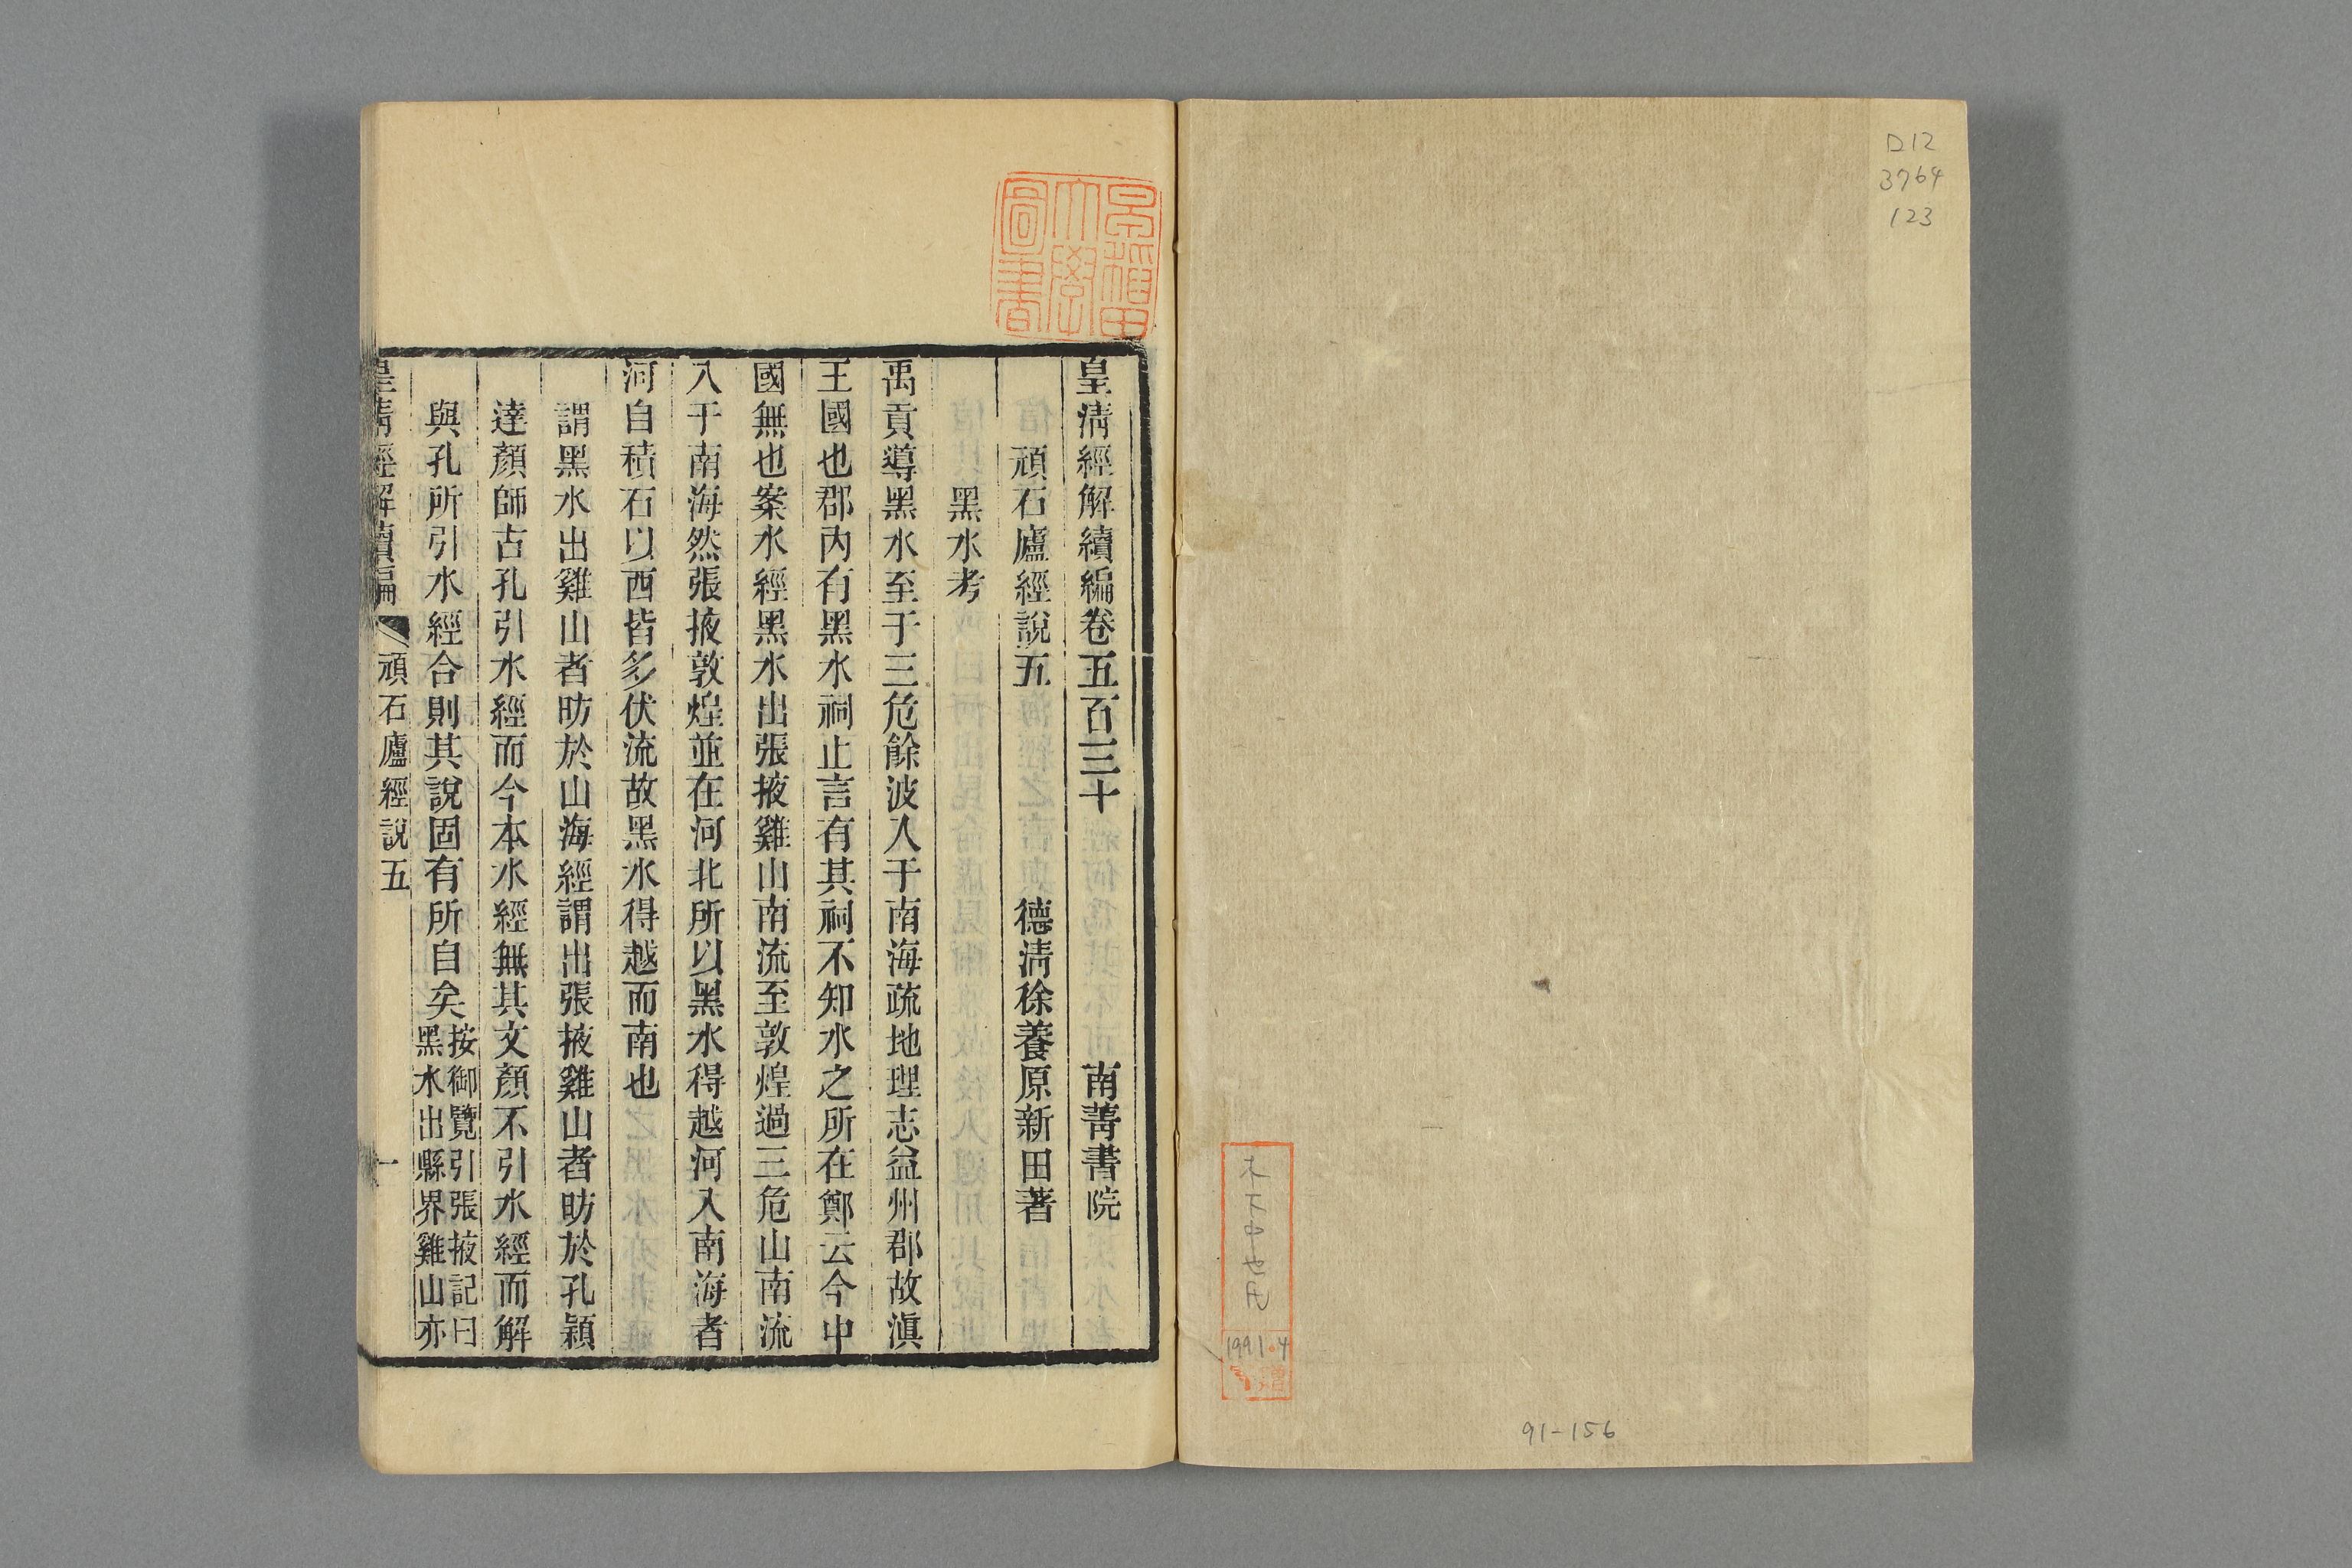 D12
3764
123
木下中也氏
1991.4
寄贈
91-156
早稲田
大學
圖書
皇清經解續編卷五百三十 南菁書院
頑石廬經說五 德清徐養原新田著
黑水考
禹貢導黑水至于三危餘波入于南海疏地理志益州郡故滇
王國也郡內有黑水祠止言有其祠不知水之所在鄭云今中
國無也案水經黑水出張掖雞山南流至敦煌過三危山南流
入于南海然張掖敦煌並在河北所以黑水得越河入南海者
河自積石以西皆多伏流故黑水得越而南也
謂黑水出雞山者昉於山海經謂出張掖雞山者昉於孔穎
達顏師古孔引水經而今本水經無其文顏不引水經而解
與孔所引水經合則其說固有所自矣按御覽引張掖記曰
黑水出縣界雞山亦
皇清經解續編 頑石廬經說五 一